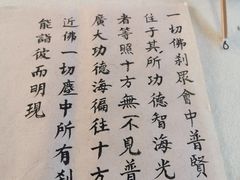 一切佛剎眾會中普賢
住于其所功德智海光
者等照十方無不見普
廣大功德海徧往十方
近佛一切塵中所有剎
能詣彼而明現